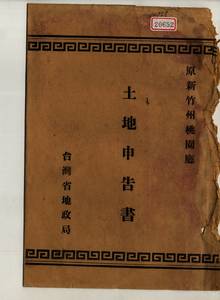 20652
原新竹州桃園廳
土地申告書
台灣省地政局